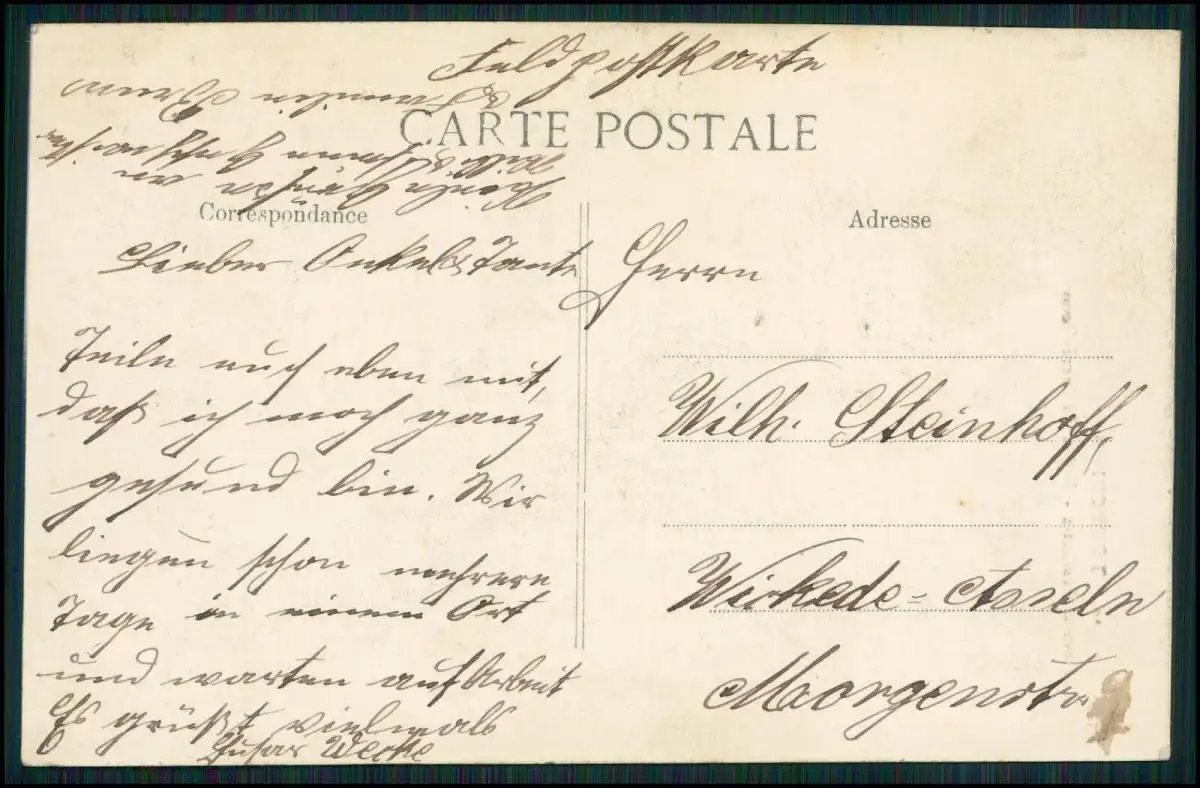 Feldpostkarte
CARTE POSTALE
Correspondance
Adresse
Lieber Onkel & Tante
Teile euch eben mit,
daß ich noch ganz
gesund bin. Wir
liegen schon mehrere
Tage in einem Ort
und warten auf Arbeit
Es grüßt vielmals
Husar
Viele Grüße an
Familie
Herrn
Wilh. Steinhoff,
Wickede-Asseln
Morgenstr.